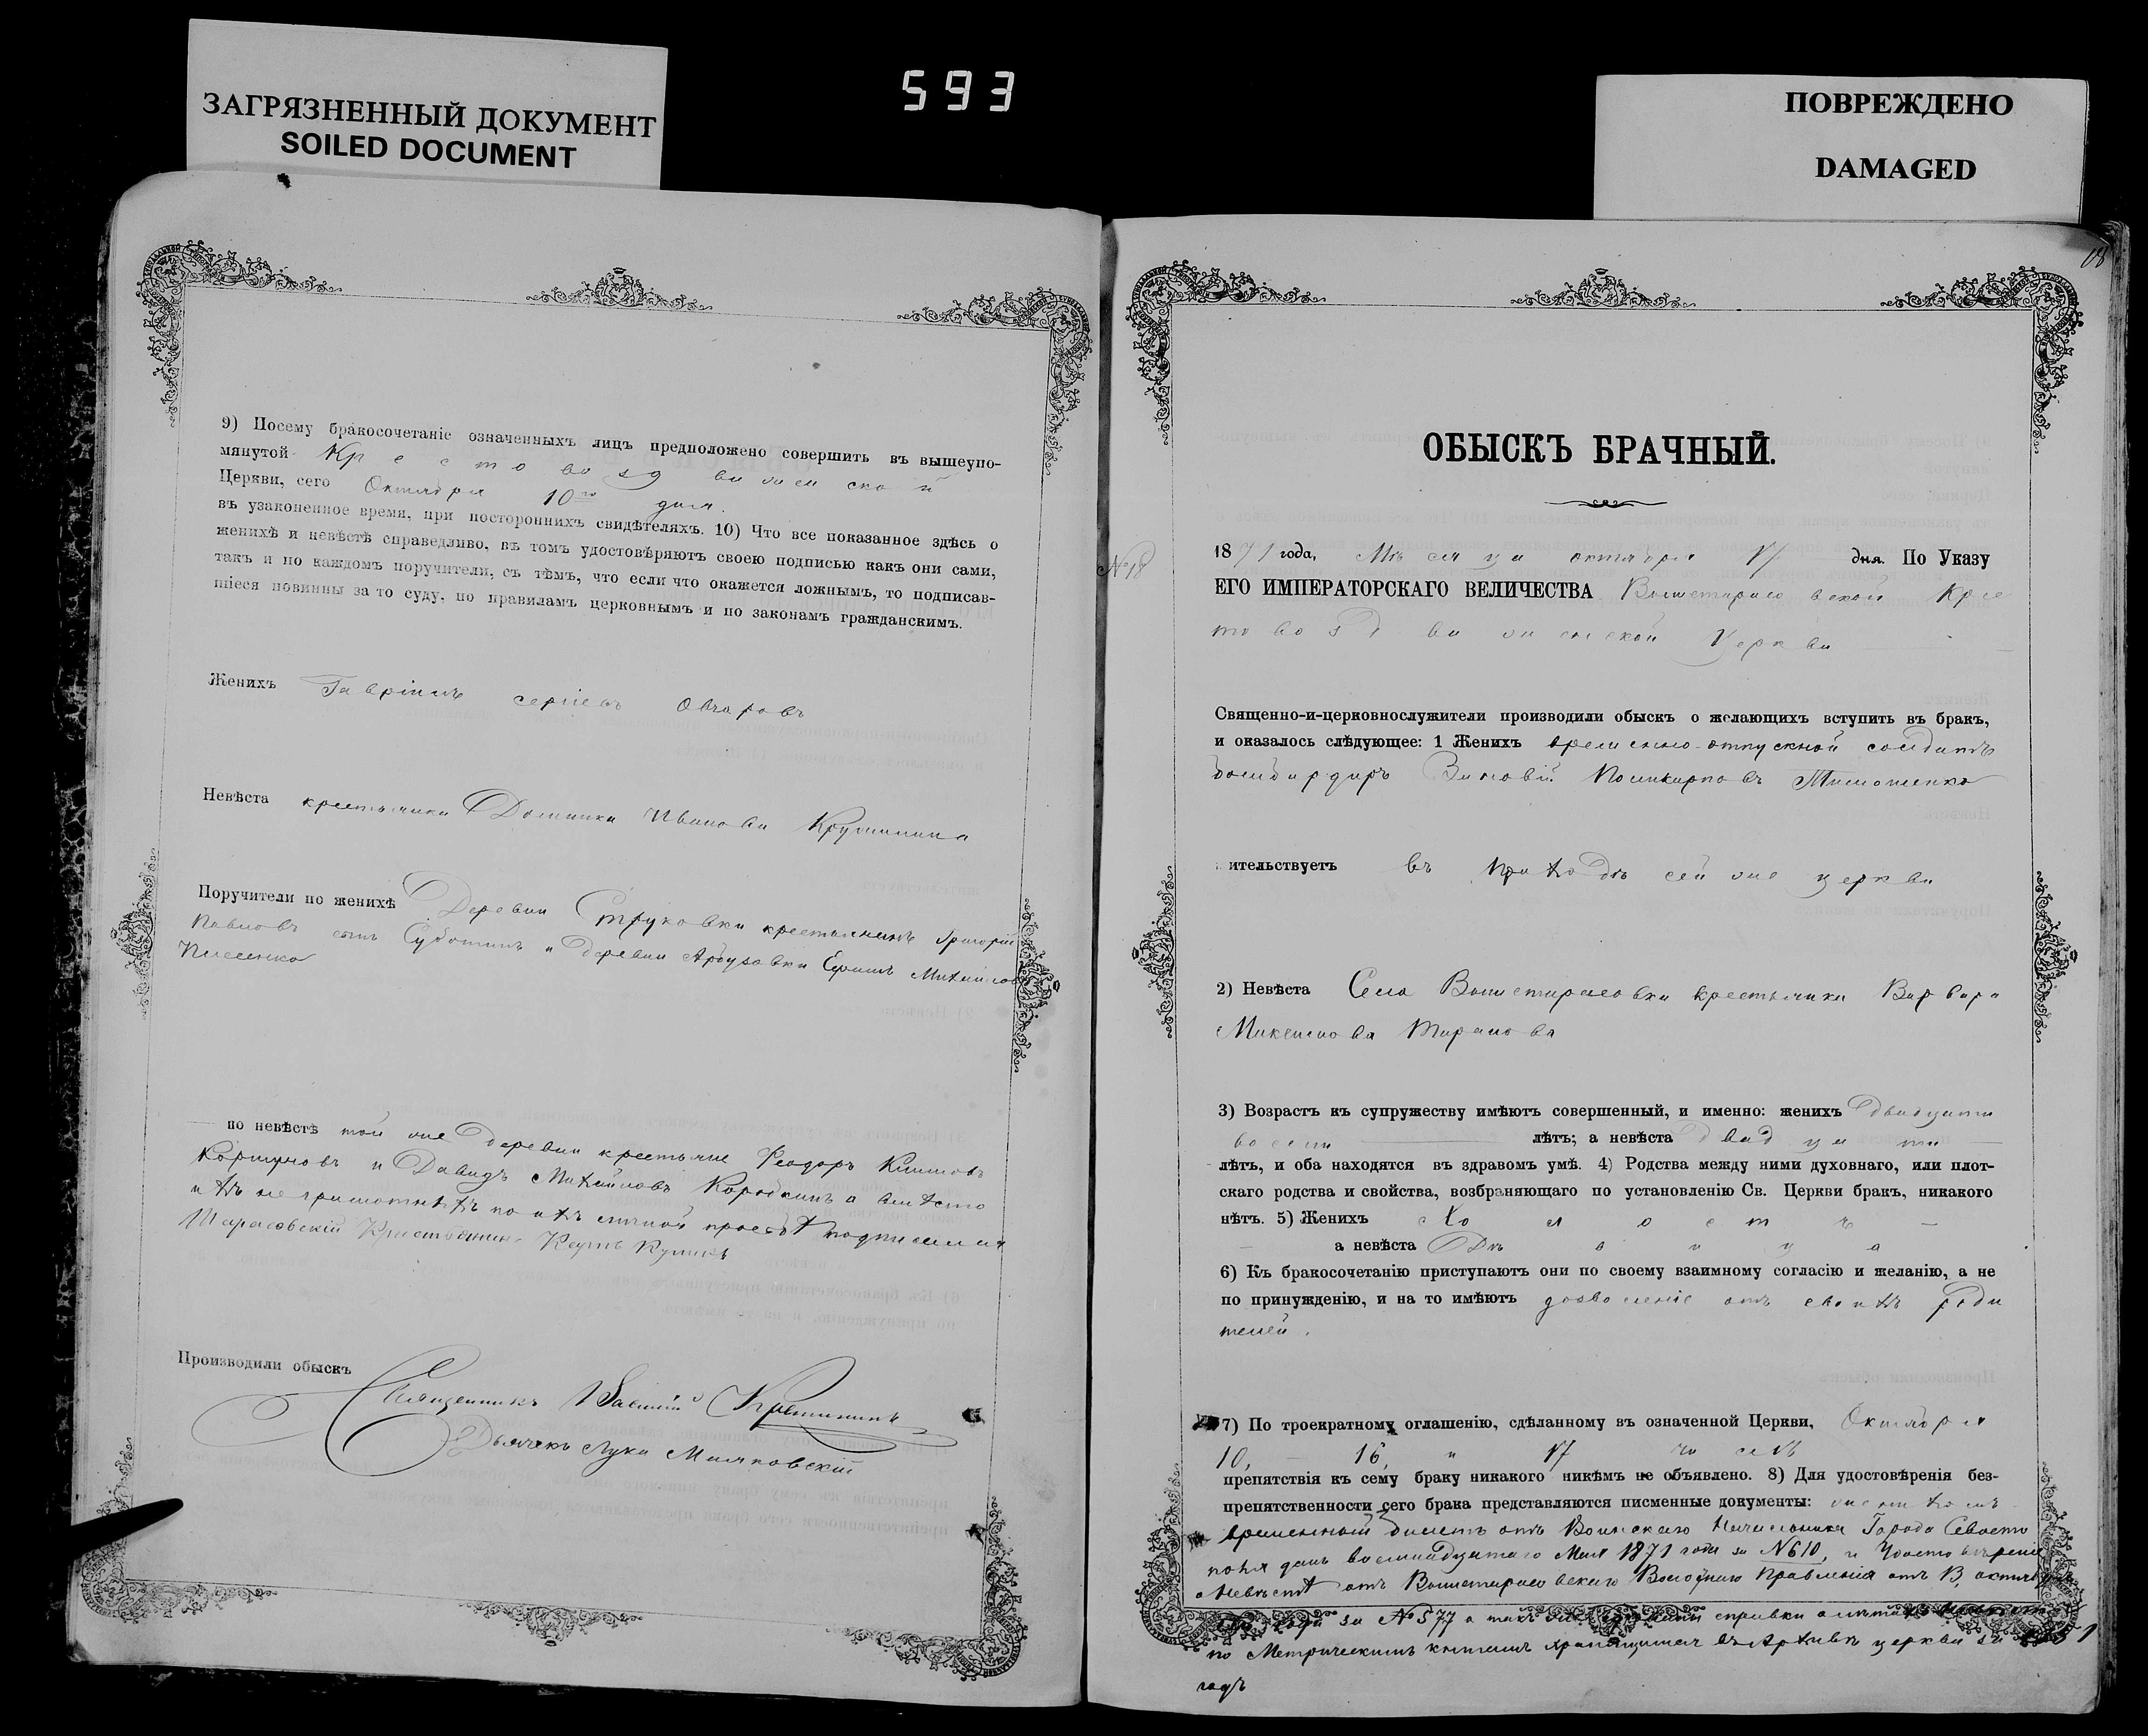 ЗАГРЯЗНЕННЫЙ ДОКУМЕНТ
SOILED DOCUMENT
593
ПОВРЕЖДЕНО
DAMAGED
9) Посему бракосочетаніе означенныхъ лицъ предположено совершить въ вышеупо-
мянутой Крестовоздвиженской
Церкви, сего Октября 10го дня.
въ узаконенное время, при постороннихъ свидѣтеляхъ. 10) Что все показанное здѣсь о
женихѣ и невѣстѣ справедливо, въ томъ удостовѣряютъ своею подписью какъ они сами,
такъ и по каждомъ поручители, съ тѣмъ, что если что окажется ложнымъ, то подписав-
шіеся повинны за то суду, по правиламъ церковнымъ и по законамъ гражданскимъ.
Женихъ Гавріилъ сергіевъ Овчаровъ
Невѣста крестьянка Домника Иванова
Поручители по женихѣ Деревни Струковки крестьянинъ Григорій
Павловъ сынъ Суботинъ и деревни Арбузовки Ефимъ Михайлов
по невѣстѣ той же деревни крестьяне Феодоръ Климовъ
Коршуновъ и Давидъ Михайловъ Коробкинъ а вмѣсто
ихъ не грамотныхъ по ихъ личной прозьбѣ подписался
Производили обыскъ
Священникъ Василій
Дьячекъ Лука
ОБЫСКЪ БРАЧНЫЙ.
№18
1871 года, Мѣсяца октября 17 дня. По Указу
ЕГО ИМПЕРАТОРСКАГО ВЕЛИЧЕСТВА Вольнетарасовской Крес
товоздвиженской Церкви
Священно-и-церковнослужители производили обыскъ о желающихъ вступить въ бракъ,
и оказалось слѣдующее: 1 Женихъ временно-отпускной солдатъ
бомбардиръ Зиновій Поликарповъ Тимошенко
жительствуетъ въ приходѣ сей же церкви
2) Невѣста Села крестьянка Варвара
3) Возрастъ къ супружеству имѣютъ совершенный, и именно: женихъ двадцати
восьми лѣтъ; а невѣста двадцати
лѣтъ, и оба находятся въ здравомъ умѣ. 4) Родства между ними духовнаго, или плот-
скаго родства и свойства, возбраняющаго по установленію Св. Церкви бракъ, никакого
нѣтъ. 5) Женихъ Холостъ
а невѣста Дѣвица
6) Къ бракосочетанію приступаютъ они по своему взаимному согласію и желанію, а не
по принужденію, и на то имѣютъ дозволеніе отъ своихъ роди
телей.
7) По троекратному оглашенію, сдѣланному въ означенной Церкви, Октября
10, 16, и 17 чиселъ
препятствія къ сему браку никакого никѣмъ не объявлено. 8) Для удостовѣренія без-
препятственности сего брака представляются писменные документы: женихомъ
временный билетъ отъ Воинскаго Начальника Города Севасто
поля данъ восмнадцатаго Мая 1871 года за №610, и Удостовѣреніе
Невѣстѣ отъ Волостнаго Правленія отъ октяб
года за №577 а также справки о лѣтахъ
по Метрическимъ книгамъ хранящимся въ Архивѣ церкви за
годъ